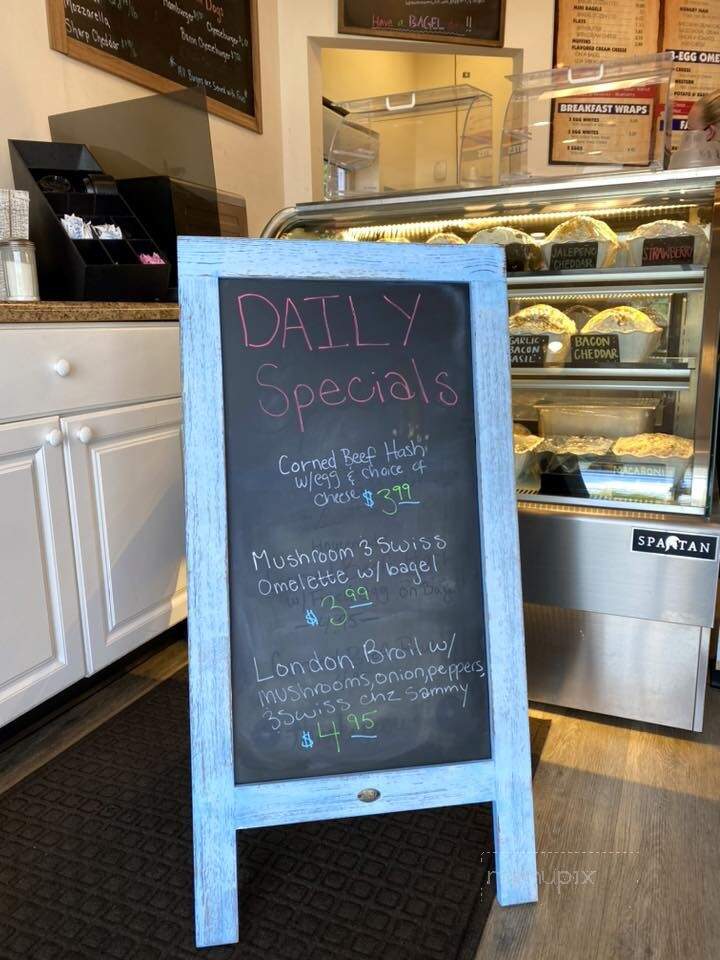 Mozzarella
Sharp Cheddar
Dogs
Hamburger
Bacon Cheeseburger
* All Burgers are Served with Fries*
Have a BAGEL !!
MINI BAGELS
FLATS
MUFFINS
FLAVORED CREAM CHEESE
BREAKFAST WRAPS
2 EGG WHITES
3 EGG WHITES
2 EGGS
HUNGRY MAN
3-EGG OME
CHEESE
WESTERN
JALEPEÑO
CHEDDAR
STRAWBERRY
GARLIC
BACON
BASIL
BACON
CHEDDAR
MACARONI
SPARTAN
DAILY
Specials
Corned Beef Hash
w/egg & choice of
cheese $3.99
Mushroom 3 Swiss
Omelette w/ bagel
$3.99
London Broil w/
mushrooms, onion, peppers,
3 Swiss chz sammy
$4.95
menupix